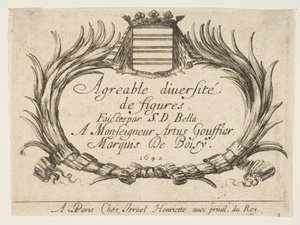 Agreable diuersité
de figures
Faictes par S. D. Bella
A Monseigneur Artus Gouffier
Marquis De Boisy.
1642
A Paris Chez Israel Henriette auec priuil. du Roy.